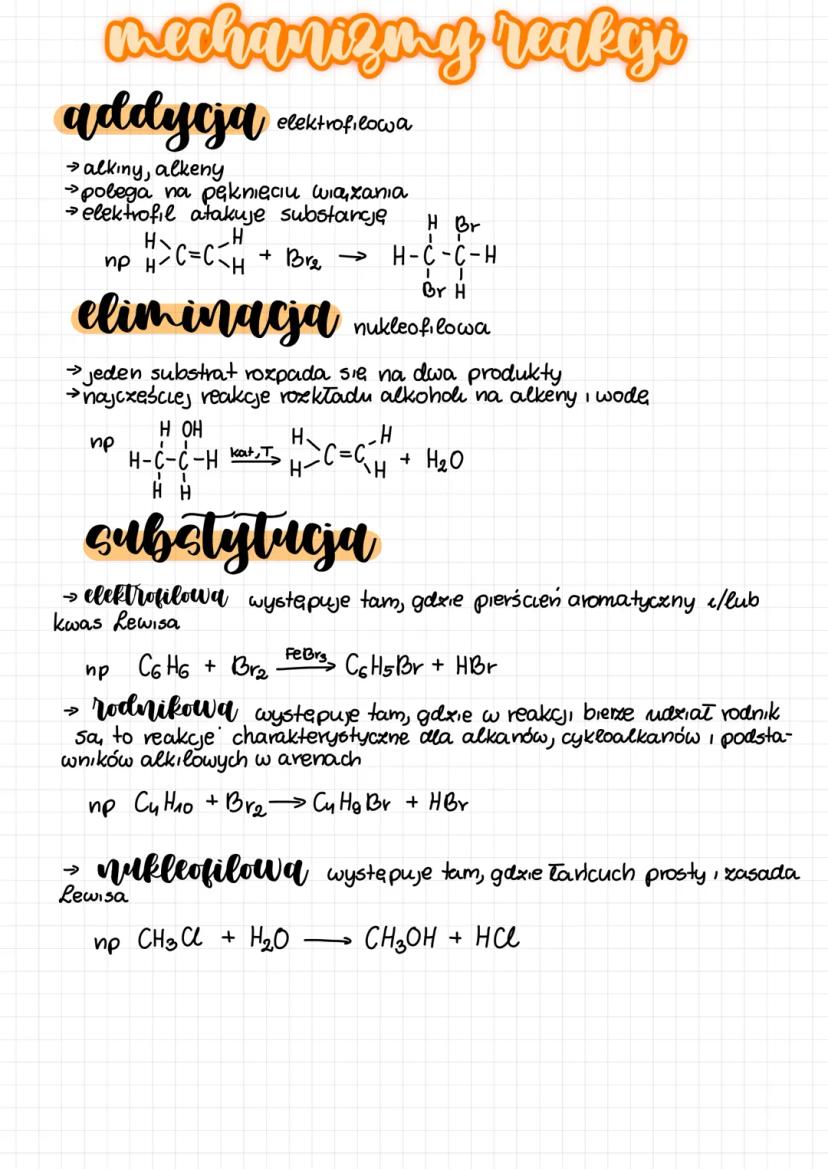 mechanizmy reakcji
addycja elektrofilowa
→ alkiny, alkeny
→ polega na pęknięciu wiązania
→ elektrofil atakuje substancję
H Br
H H
np C=C + Br₂ → H-C-C-H
H H
Br H
eliminacja nukleofilowa
→ jeden substrat rozpada się na dwa produkty
→ najczęściej reakcje rozkładu alkoholi na alkeny i wodę
H OH
np H H
H-C-C-H kat,T→ C=C + H₂O
H H
H H
substytucja
→ elektrofilowa występuje tam, gdzie pierścień aromatyczny i/lub
kwas Lewisa
np C₆H₆ + Br₂ FeBr₃→ C₆H₅Br + HBr
→ rodnikowa występuje tam, gdzie w reakcji bierze udział rodnik
są to reakcje charakterystyczne dla alkanów, cykloalkanów i podsta-
wników alkilowych w arenach
np C₄H₁₀ + Br₂ → C₄H₉Br + HBr
→ nukleofilowa występuje tam, gdzie łańcuch prosty i zasada
Lewisa
np CH₃Cl + H₂O → CH₃OH + HCl